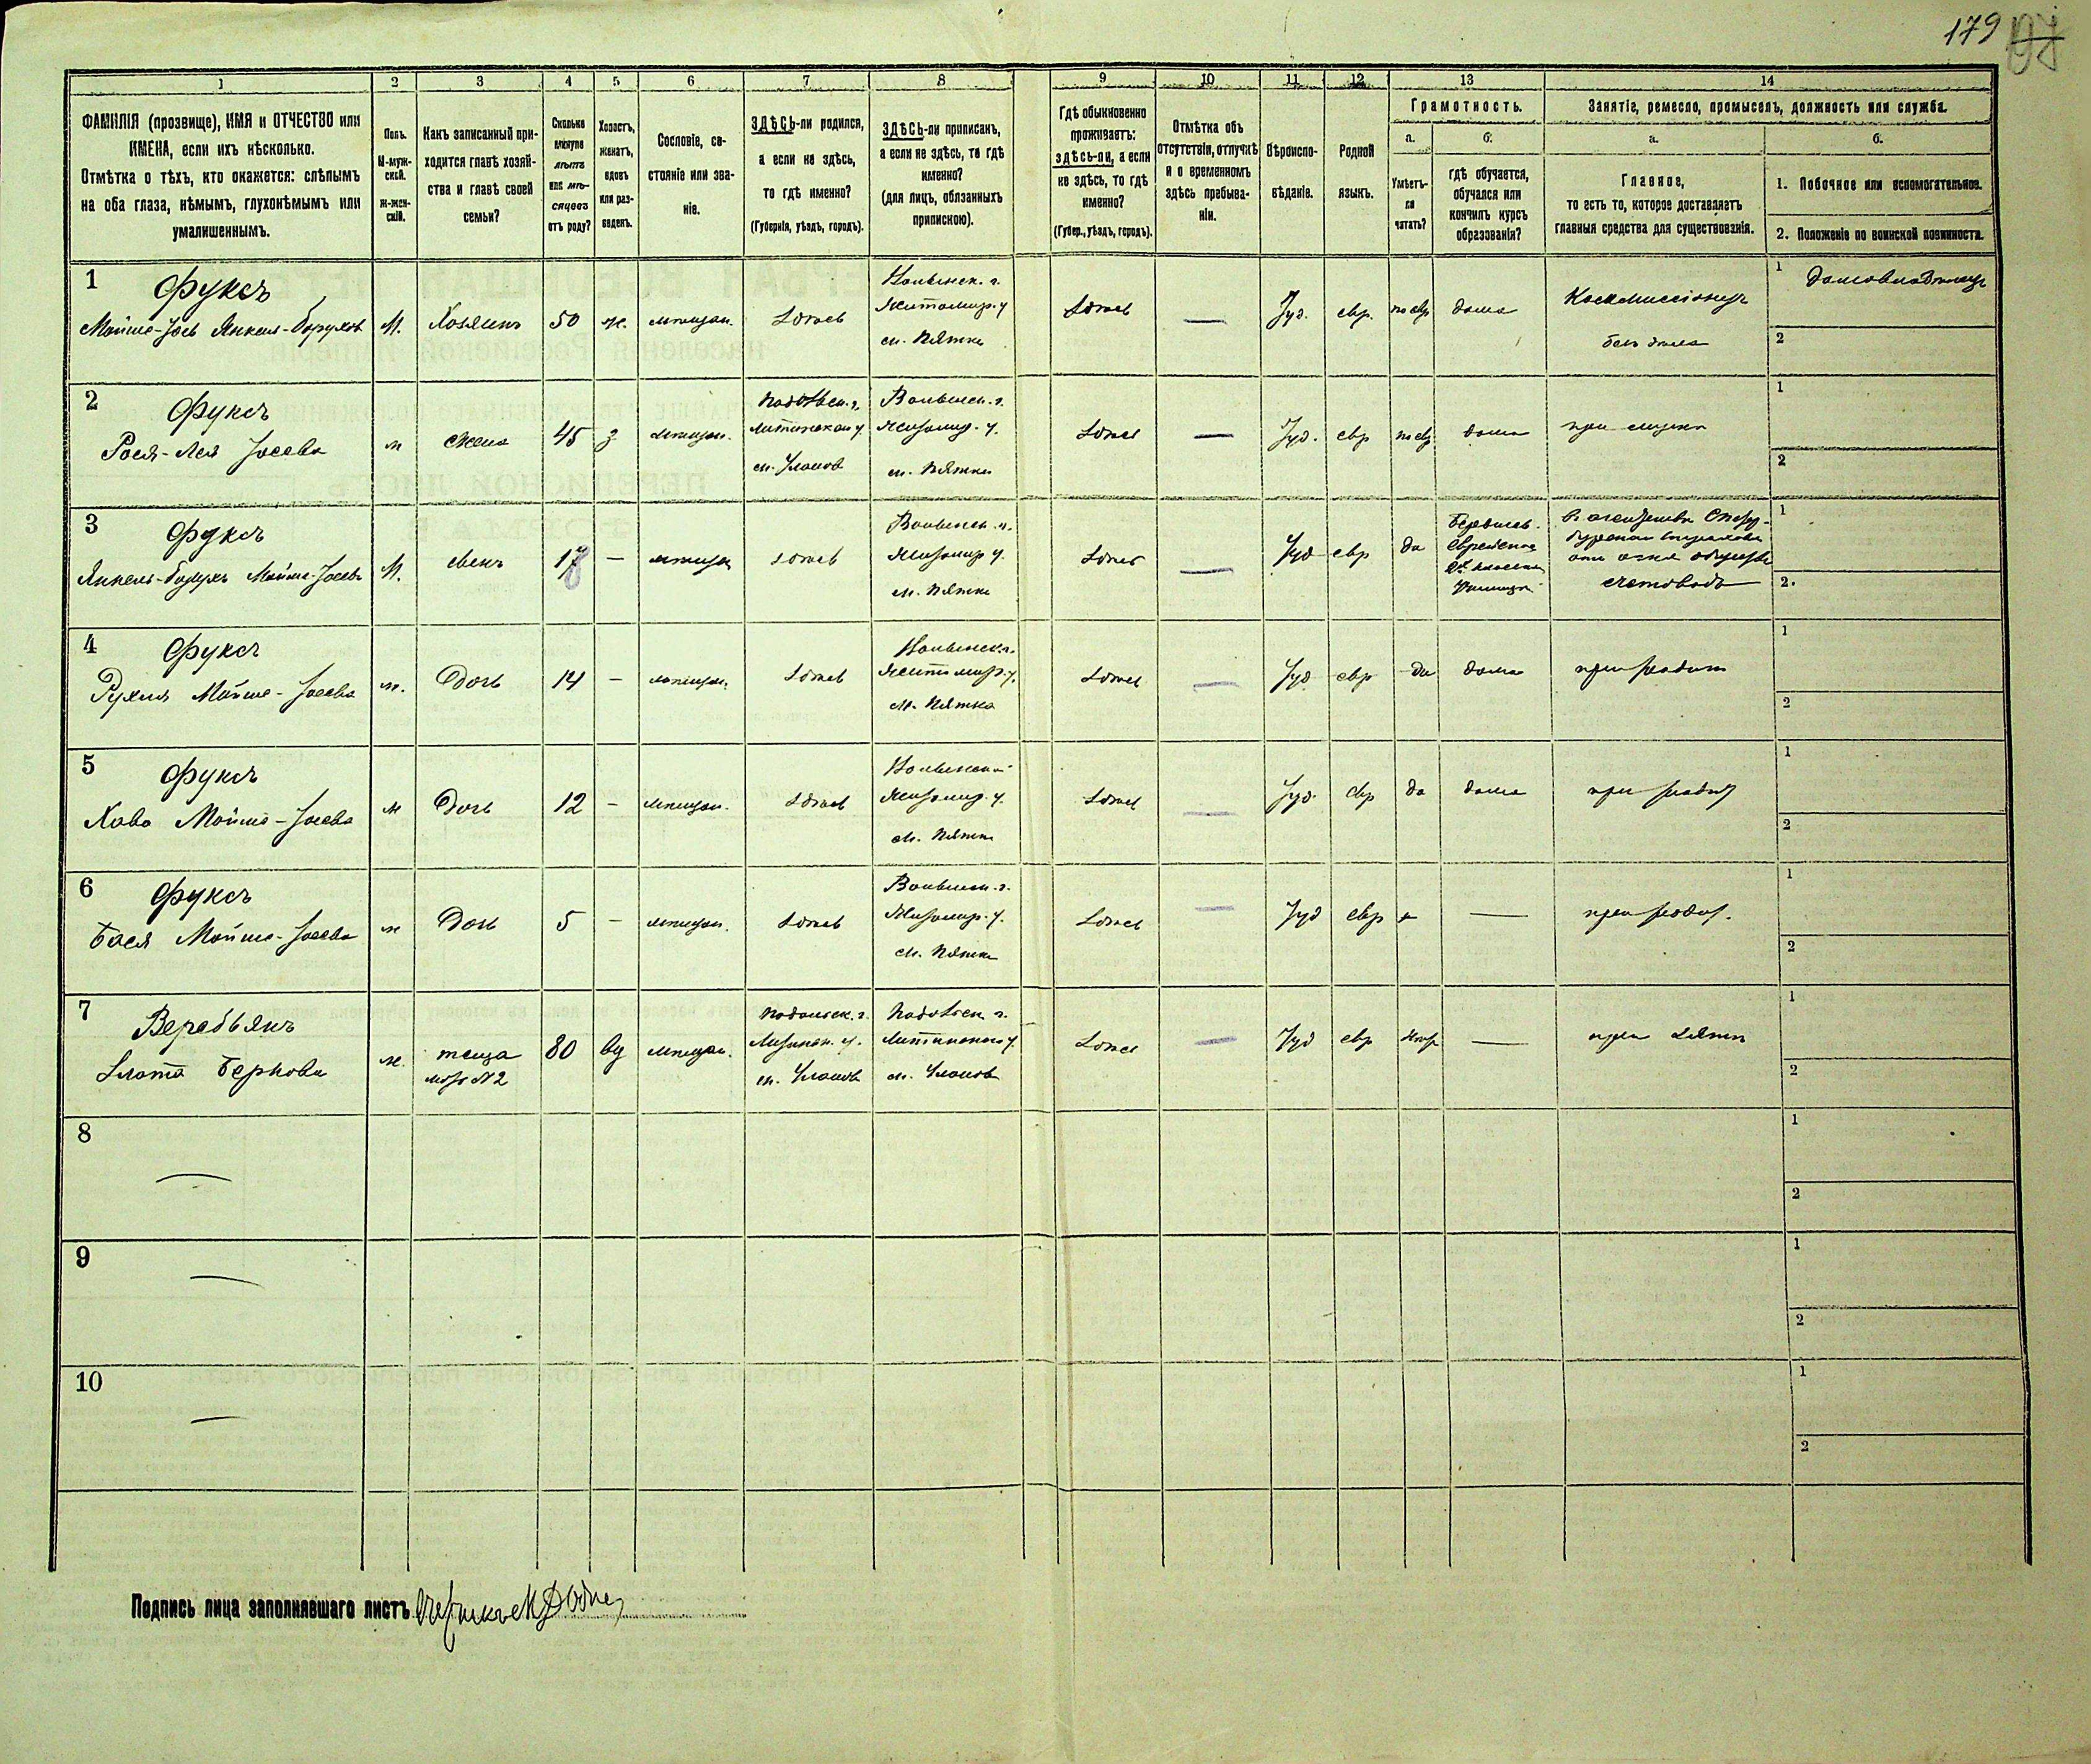 179
1
2
3
4
5
6
7
8
9
10
11
12
13
14
ФАМИЛІЯ (прозвище), ИМЯ и ОТЧЕСТВО или
ИМЕНА, если ихъ нѣсколько.
Отмѣтка о тѣхъ, кто окажется: слѣпымъ
на оба глаза, нѣмымъ, глухонѣмымъ или
умалишеннымъ.
Полъ.
М-муж-
ской.
Ж-жен-
скій.
Какъ записанный при-
ходится главѣ хозяй-
ства и главѣ своей
семьи?
Сколько
минуло
лѣтъ
или мѣ-
сяцевъ
отъ роду?
Холостъ,
женатъ,
вдовъ
или раз-
веденъ.
Сословіе, со-
стояніе или зва-
ніе.
ЗДѢСЬ-ли родился,
а если не здѣсь,
то гдѣ именно?
(Губернія, уѣздъ, городъ).
ЗДѢСЬ-ли приписанъ,
а если не здѣсь, то гдѣ
именно?
(для лицъ, обязанныхъ
припискою).
Гдѣ обыкновенно
проживаетъ:
здѣсь-ли, а если
не здѣсь, то гдѣ
именно?
(Губер., уѣздъ, городъ).
Отмѣтка объ
отсутствіи, отлучкѣ
и о временномъ
здѣсь пребыва-
ніи.
Вѣроиспо-
вѣданіе.
Родной
языкъ.
Грамотность.
а.
Умѣетъ-
ли
читать?
б.
гдѣ обучается,
обучался или
кончилъ курсъ
образованія?
Занятіе, ремесло, промыселъ, должность или служба.
а.
Главное,
то есть то, которое доставляетъ
главныя средства для существованія.
б.
1. Побочное или вспомогательное.
2. Положеніе по воинской повинности.
1
Фуксъ
Мойше-Іось Янкель-Борухов
М. Хозяинъ 50 ж. мѣщан. Здѣсь
Волынск. г.
Житомир. у
м. Пятка
Здѣсь — Іуд. евр. по евр дома
Коммиссіонеръ
безъ дѣла
1 Домовладѣлецъ
2
2
Фуксъ
Рося-Лея Іосева
ж жена 45 з мѣщан.
Подольск. г.
Литинскаго у
м. Уланов
Волынск. г.
Житомир. у.
м. Пятка
Здѣсь — Іуд. евр по евр дома при мужѣ
1
2
3
Фуксъ
Янкель-Борухъ Мойше-Іосевъ
М. сынъ — мѣщан Здѣсь
Волынск. г.
Житомир у.
м. Пятка
Здѣсь — Іуд евр да
Бердичев.
Еврейское
2х классн
Училище
страхов
отъ огня общества
счетоводъ
1
2.
4
Фуксъ
Рухля Мойше-Іосева
ж. Дочь 14 — мѣщан. Здѣсь
Волынск. г.
Житомир. у.
м. Пятка
Здѣсь — Іуд евр да дома при родит
1
2
5
Фуксъ
Хава Мойше-Іосева
ж Дочь 12 — мѣщан. Здѣсь
Волынской
Житомир. у.
м. Пятка
Здѣсь — Іуд. евр да дома при родит
1
2
6
Фуксъ
Бася Мойше-Іосева
ж Дочь 5 — мѣщан. Здѣсь
Волынск. г.
Житомир. у.
м. Пятка
Здѣсь — Іуд евр — при родит.
1
2
7
Веребьянъ
Злота Беркова
ж. теща 80 вд мѣщан.
№ 2
Подольск. г.
Литинск. у.
м. Уланов
Подольск г.
Литинскаго у
м. Уланов
Здѣсь — Іуд евр негр — при зятѣ
1
2
8
—
1
2
9
—
1
2
10
—
1
2
Подпись лица заполнявшаго листъ